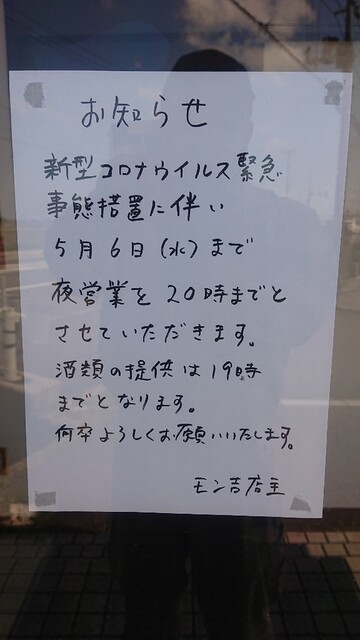 お知らせ
新型コロナウイルス緊急
事態措置に伴い
5月6日(水)まで
夜営業を20時までと
させていただきます。
酒類の提供は19時
までとなります。
何卒よろしくお願いいたします。
モン吉店主